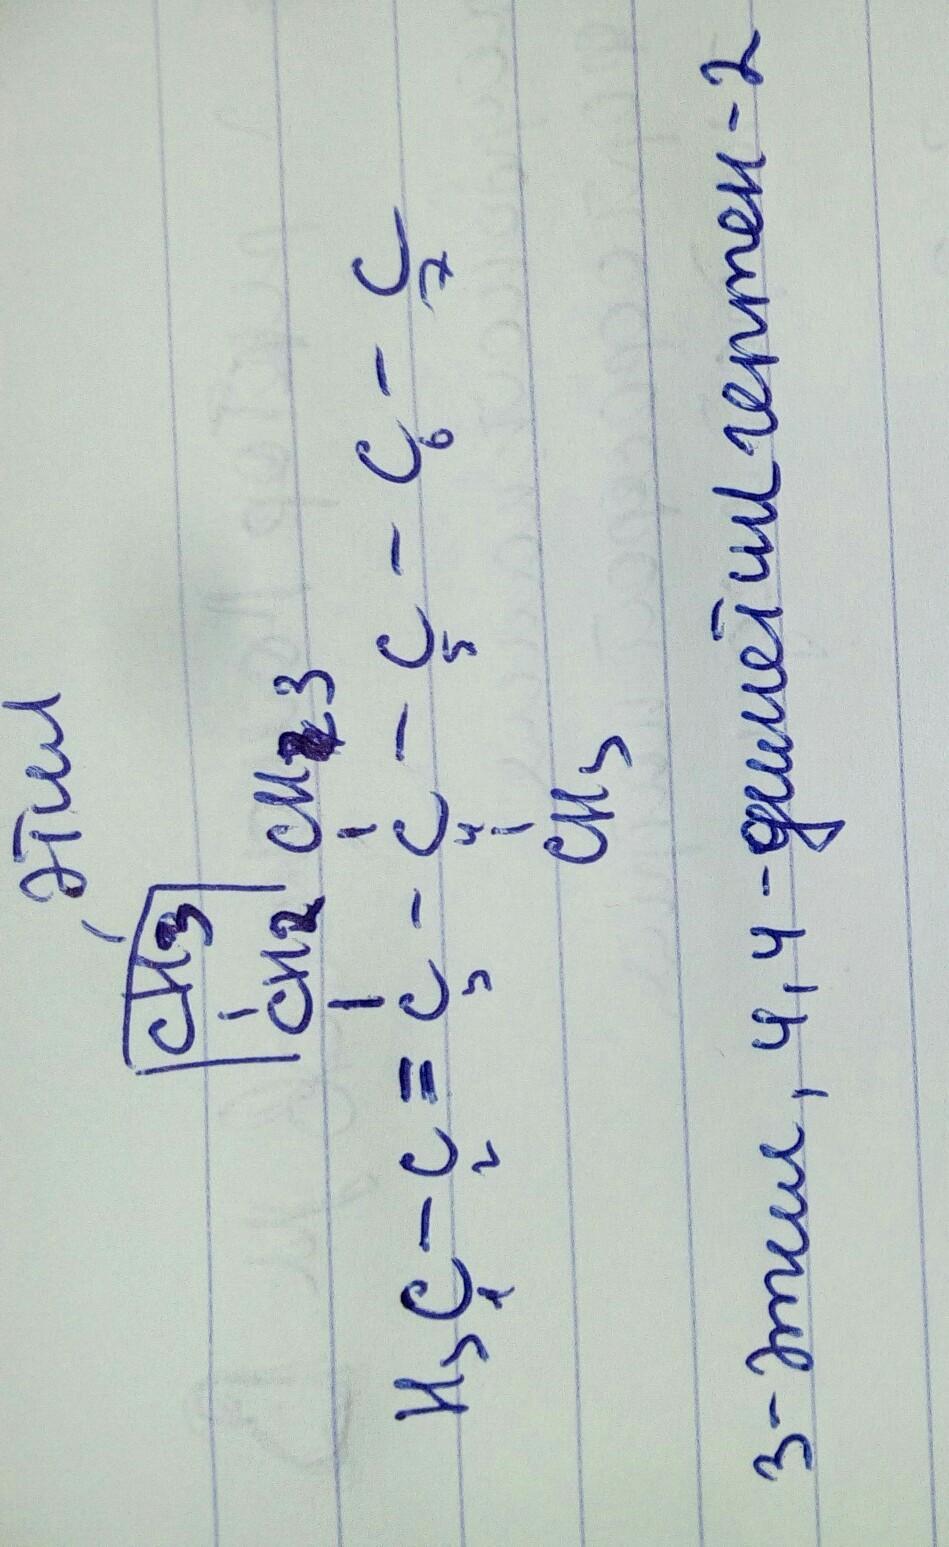 этил
CH3
CH2 CH3
H3C - C = C - C - C - C - C
1 2 3 4 5 6 7
CH3
3-этил, 4,4-диметилгептен-2